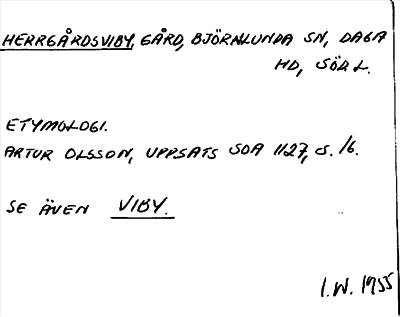 HERRGÅRDSVIBY, GÅRD, BJÖRNLUNDA SN, DAGA
HD, SÖDL.
ETYMOLOGI.
ARTUR OLSSON, UPPSATS SOA 1127, S. 16.
SE ÄVEN VIBY.
I.W. 1955